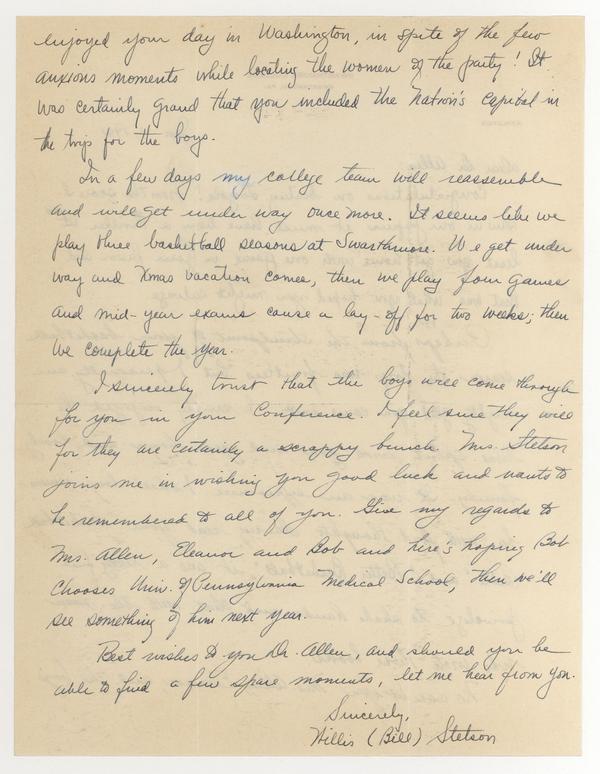 enjoyed your day in Washington, in spite of the few
anxious moments while locating the women of the party! It
was certainly grand that you included the Nation's Capital in
the trip for the boys.
In a few days my college team will reassemble
and will get under way once more. It seems like we
play three basketball seasons at Swarthmore. We get under
way and Xmas vacation comes, then we play four games
and mid-year exams cause a lay-off for two weeks; then
we complete the year.
I sincerely trust that the boys will come through
for you in your Conference. I feel sure they will
for they are certainly a scrappy bunch. Mrs. Stetson
joins me in wishing you good luck and wants to
be remembered to all of you. Give my regards to
Mrs. Allen, Eleanor and Bob and here's hoping Bob
chooses Univ. of Pennsylvania Medical School, then we'll
see something of him next year.
Best wishes to you Dr. Allen, and should you be
able to find a few spare moments, let me hear from you.
Sincerely,
Willis (Bill) Stetson